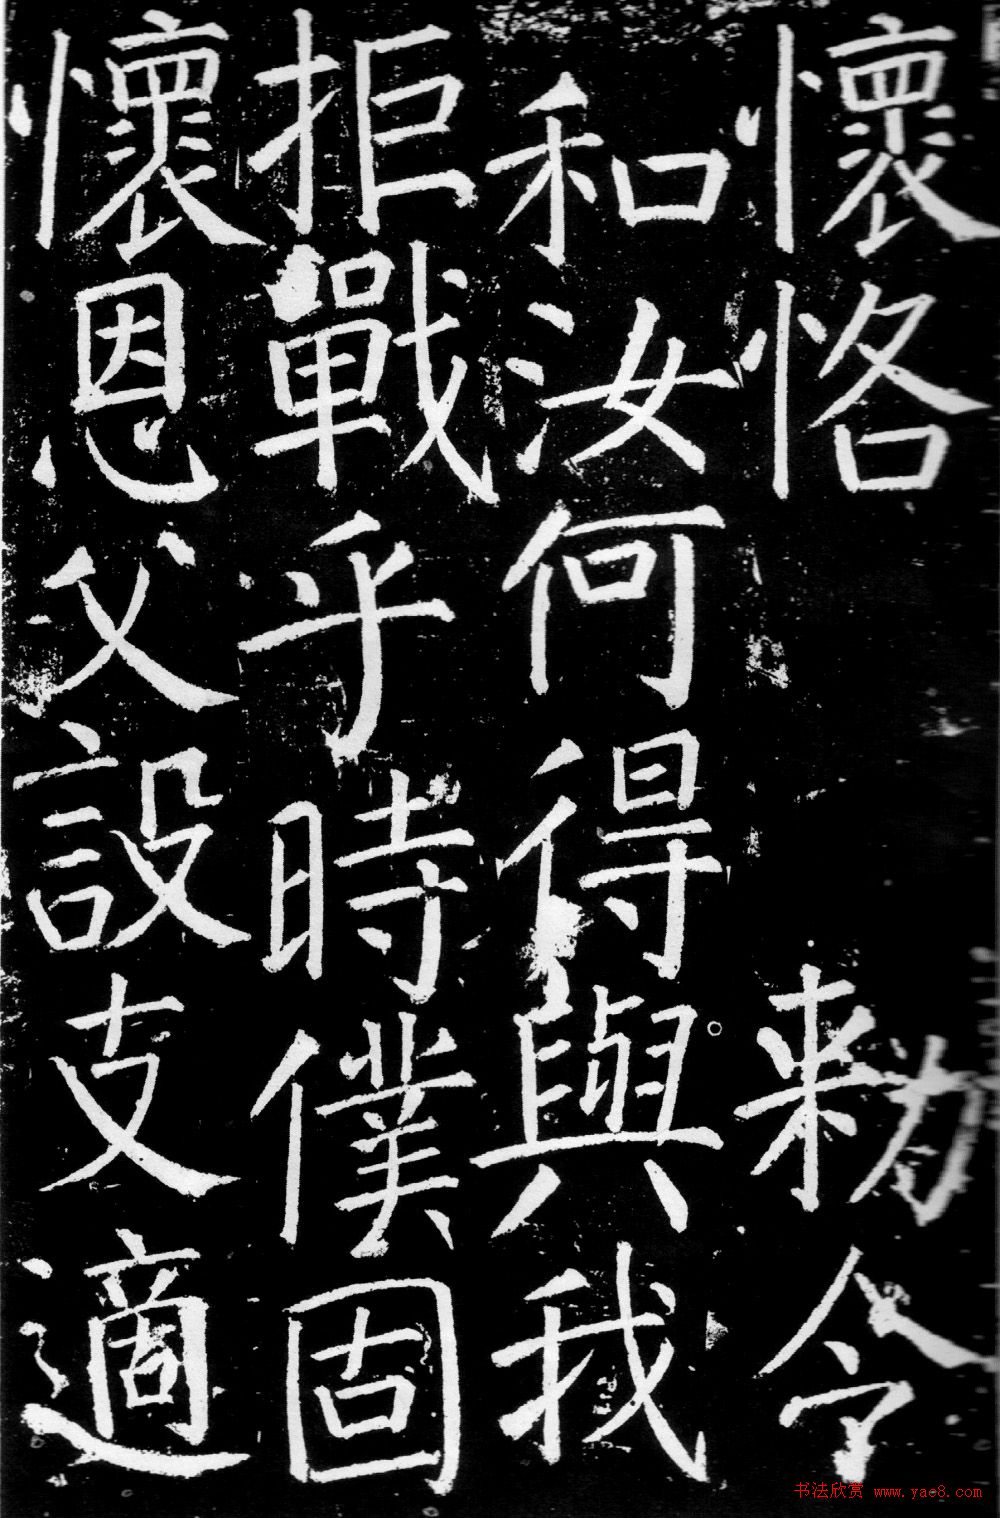 懷恪 勑令
和汝何得與我
拒戰乎時僕固
懷恩父設支適
书法欣赏 www.yac8.com